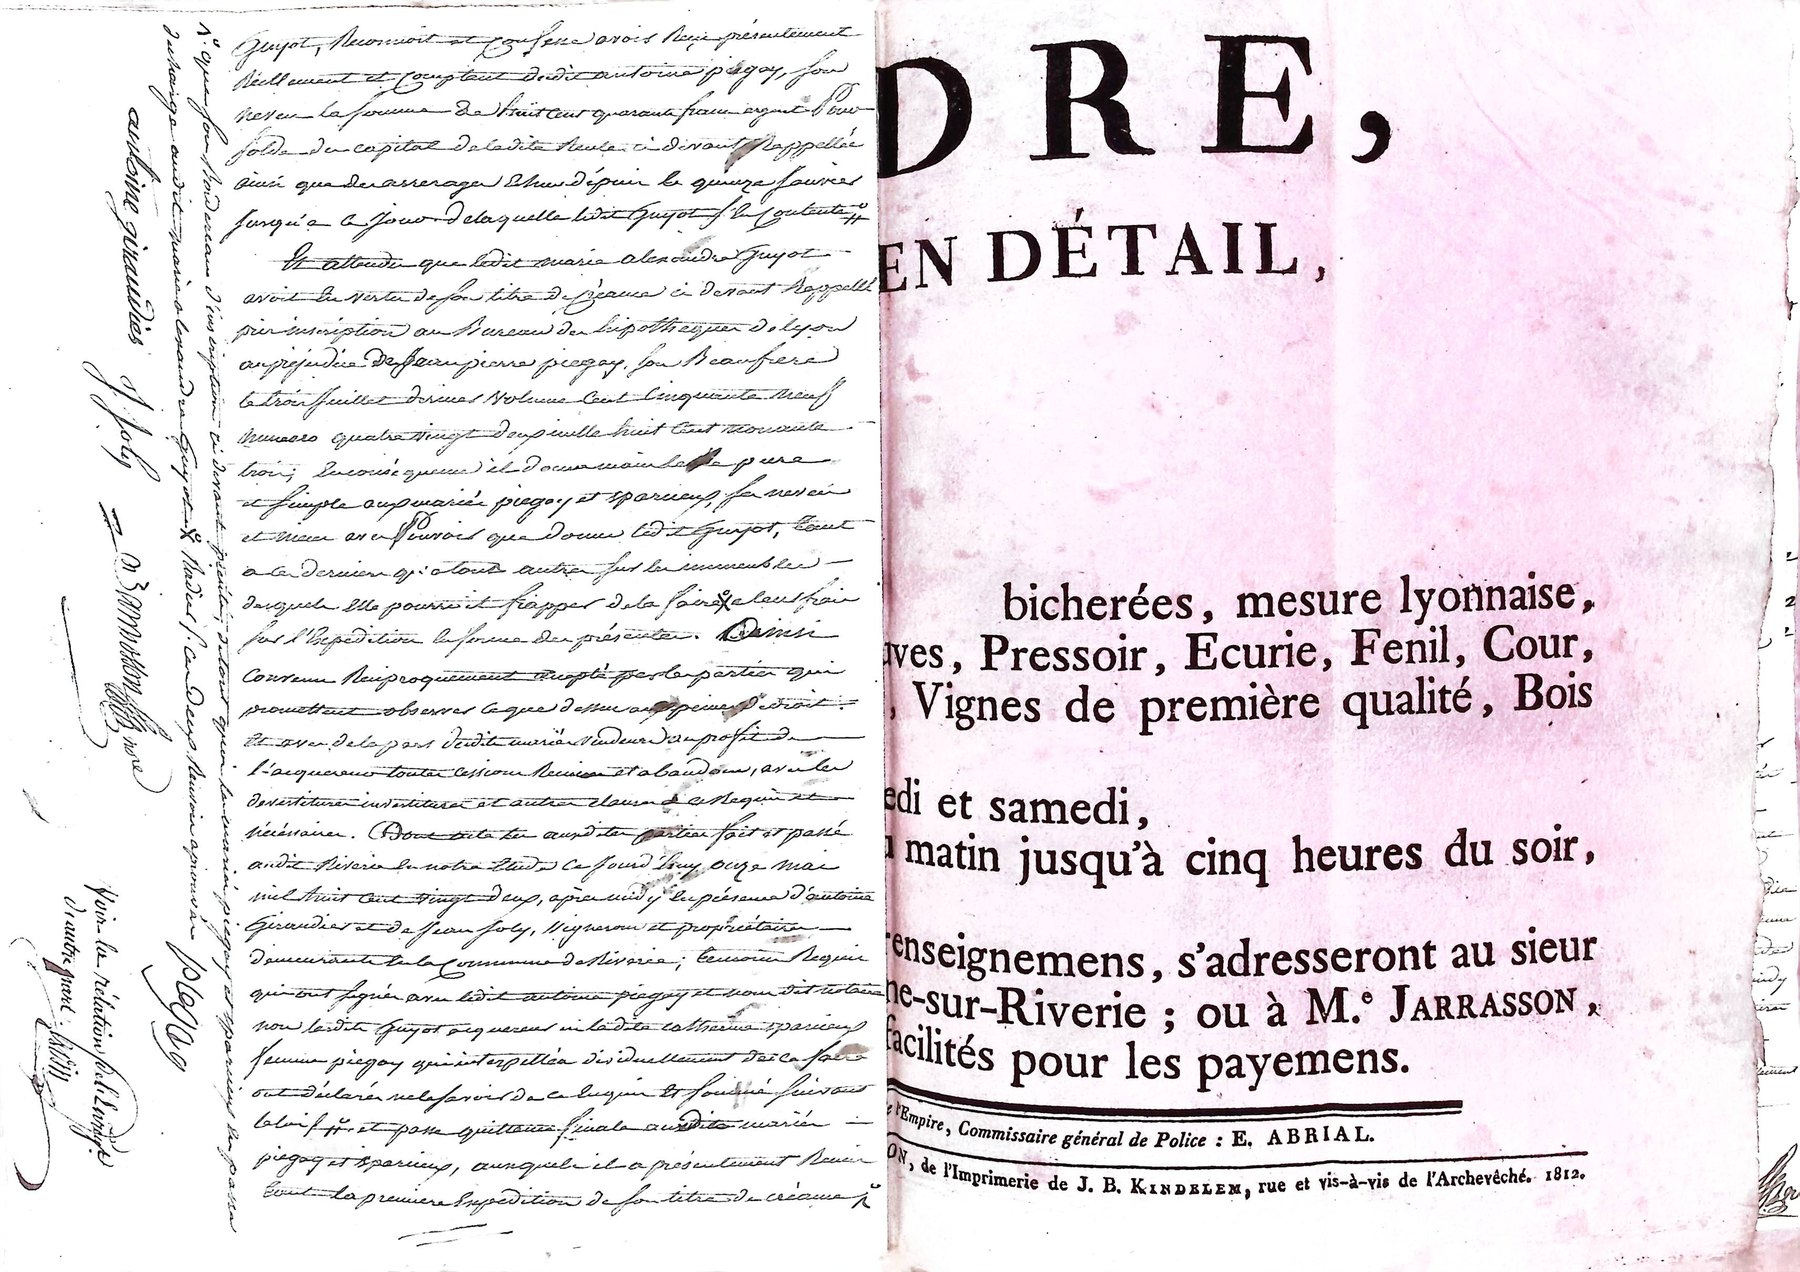 Guyot, Reconnoit et Confesse avoir Reçu présentement
Réellement et Comptant dudit antoine piegay, son
neveu la somme de huit cent quarante francs argent Pour
solde du capital de ladite Rente ci devant Rappellée
ainsi que des arrerages échus depuis le quinze
jusqu'à ce jour de laquelle ledit Guyot se Contente
Et attendu que ledit marie alexandre Guyot
avoit En vertu de son titre de Créance ci devant Rappellé
pris inscription au Bureau des hipotheques de lyon
au préjudice de Jean pierre piegay, son Beaufrere
le trois juillet dernier volume Cent Cinquante neuf
numero quatre vingt deux mille huit Cent nonante
trois; En conséquence il donne main levée pure
et simple aux mariés piegay et sparieux, ses neveu
et niece avec Pouvoir que donne ledit Guyot, tant
a ces derniers qu'a tout autre sur les immeubles
desquels Elle pourroit frapper de la faire a leurs frais
sur l'Expédition En forme des présentes. Ainsi
Convenu Réciproquement accepté par les parties qui
promettent observer ce que dessus aux peines de droit
Et avec de la part desdits mariés vendeurs au profit de
l'acquereur toutes cessions Remises et abandons, avec les
devestitures investitures et autres clauses a ce Requises et
nécéssaires. Dont acte lu auxdites parties fait et passé
audit Riverie En notre Etude Ce Jourd'huy onze mai
mil huit Cent vingt deux, après midy En présence d'antoine
Giraudier et de Jean Joly, vigneron et propriétaire
demeurants En la Commune de Riverie; temoins Requis
qui ont signés avec ledit antoine piegay et nous dit notaire
non lesdits Guyot acquereur ni ladite Catherine sparieux
femme piegay qui interpellés individuellement de ce faire
ont déclarés ne le savoir de ce Enquis Et sommés suivant
la loi et passe quittance finale auxdits mariés
piegay et sparieux, auxquels il a présentement Remis
tout la premiere Expédition de son titre de créance
1° que son Bordereau d'inscription ci devant précité, de tout quoi les mariés piegay et sparieux En passe
décharge audit marie alexandre Guyot
antoine giraudier
J Joly
piegay
Voir la rélation de l'Enregt.
d'autre part.
DRE,
EN DÉTAIL,
bicherées, mesure lyonnaise,
uves, Pressoir, Ecurie, Fenil, Cour,
, Vignes de première qualité, Bois
edi et samedi,
matin jusqu'à cinq heures du soir,
renseignemens, s'adresseront au sieur
ne-sur-Riverie ; ou à M.e JARRASSON,
facilités pour les payemens.
e l'Empire, Commissaire général de Police : E. ABRIAL.
ON, de l'Imprimerie de J. B. KINDELEM, rue et vis-à-vis de l'Archevêché. 1812.